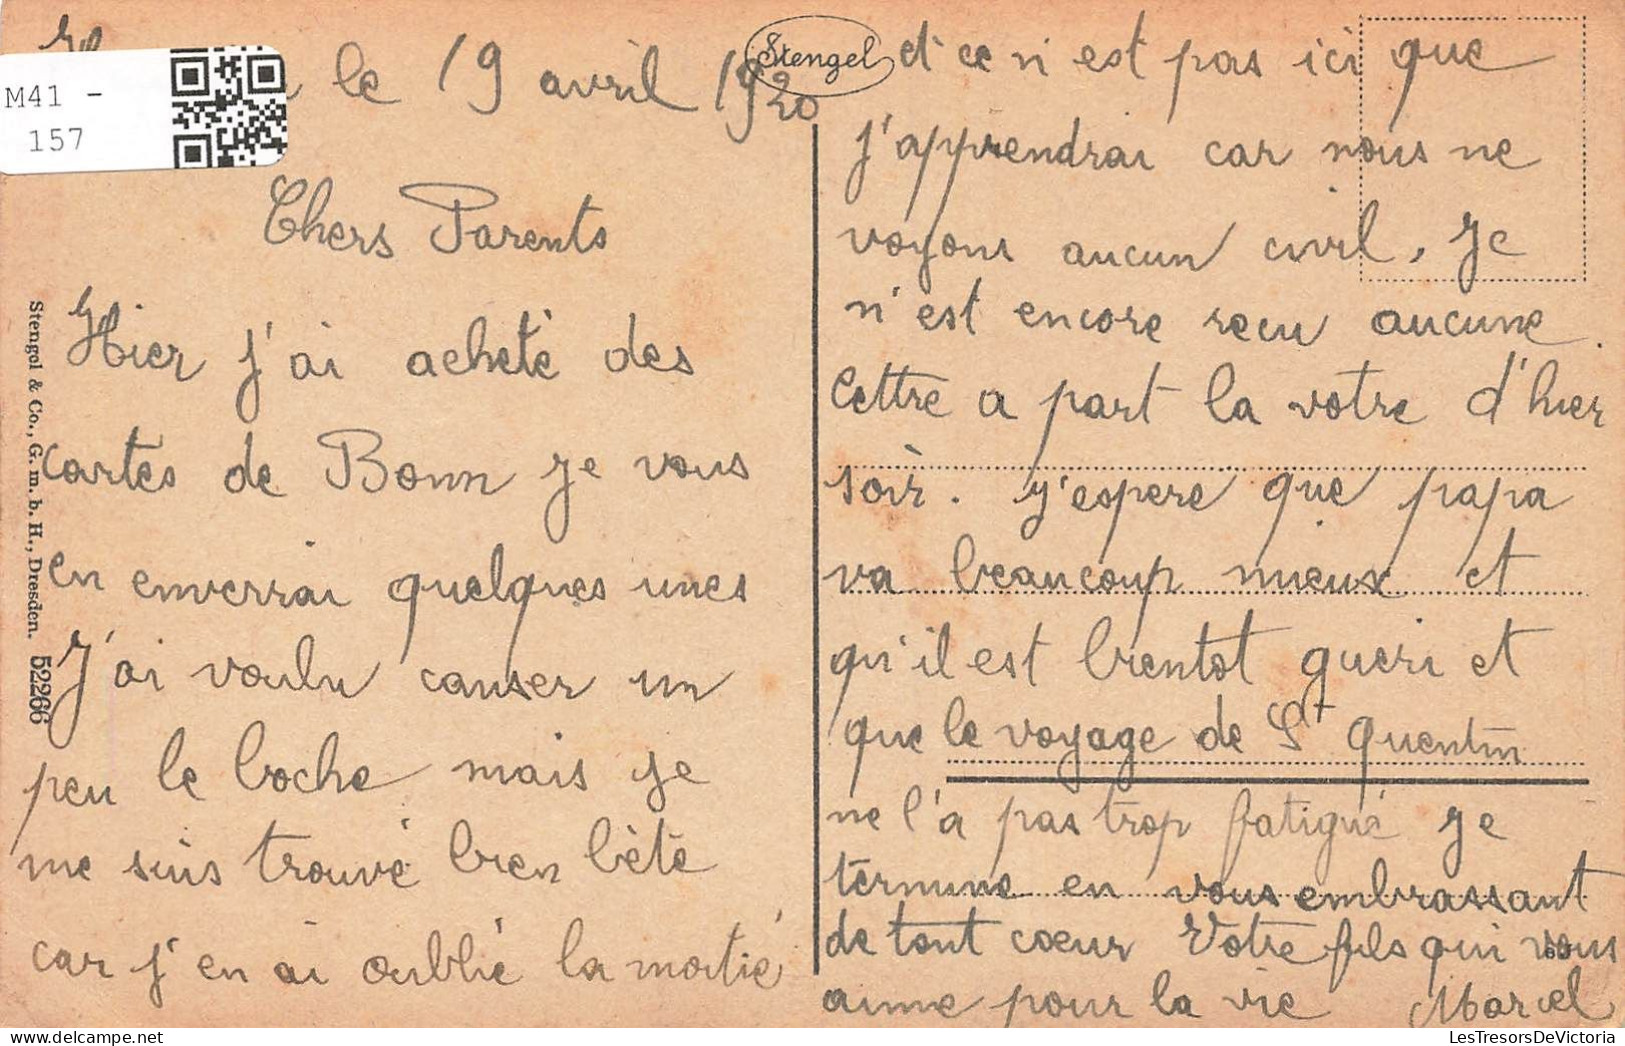 M41 -
157
le 19 avril 1920
Chers Parents
Hier j'ai acheté des
cartes de Bonn je vous
en enverrai quelques unes
J'ai voulu causer un
peu le boche mais je
me suis trouvé bien bète
car j'en ai oublié la moitié
Stengel
et ce n'est pas ici que
j'apprendrai car nous ne
voyons aucun civil. Je
n'est encore recu aucune
lettre a part la votre d'hier
soir. J'espere que papa
va beaucoup mieux et
qu'il est bientot gueri et
que le voyage de St Quentin
ne l'a pas trop fatigué je
termine en vous embrassant
de tout cœur Votre fils qui vous
aime pour la vie Marcel
Stengel & Co., G. m. b. H., Dresden. 52266
LesTresorsDeVictoria